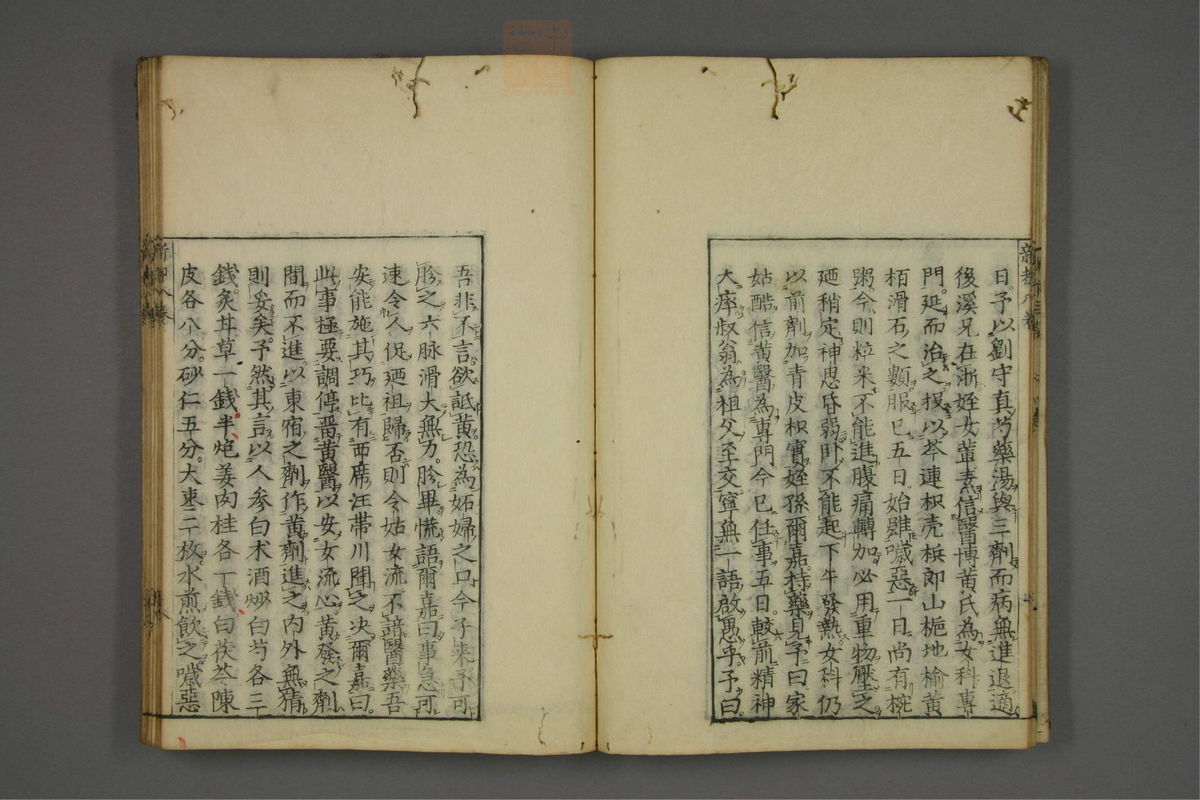 日予以劉守真芍藥湯與三劑而病無進退適
後溪兄在浙姪女輩素信醫博黃氏為女科專
門延而治之投以芩連枳壳梹郎山梔地榆黃
栢滑石之類服已五日始雖噦惡一日尚有梳
粥今則粒米不能進腹痛轉加必用重物壓之
廼稍定神思昏弱卧不能起下午發熱女科仍
以前劑加青皮枳實姪孫爾嘉持藥見予曰家
姑酷信黃醫為專門今已任事五日較前精神
大瘁叔翁為祖父至交寧無一語啟愚乎予曰
吾非不言欲詆黃恐為妬婦之口今子来予可
胗之六脉滑大無力胗畢慌語爾嘉曰事急可
速令人促廼祖歸否則令姑女流不諳醫藥吾
安能施其巧比有西席汪帶川聞之决爾嘉曰
此事極要調停啚黃醫以安女流心黃發之劑
間而不進以東宿之劑作黃劑進之内外無猜
則妥矣予然其言以人参白术酒炒白芍各三
錢炙甘草一錢半炮姜肉桂各一錢白茯苓陳
皮各八分砂仁五分大枣二枚水煎飲之噦惡